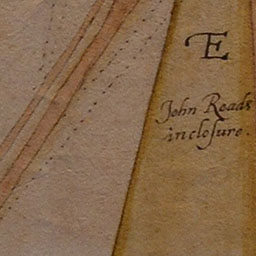 E
John Roads
inclosure.